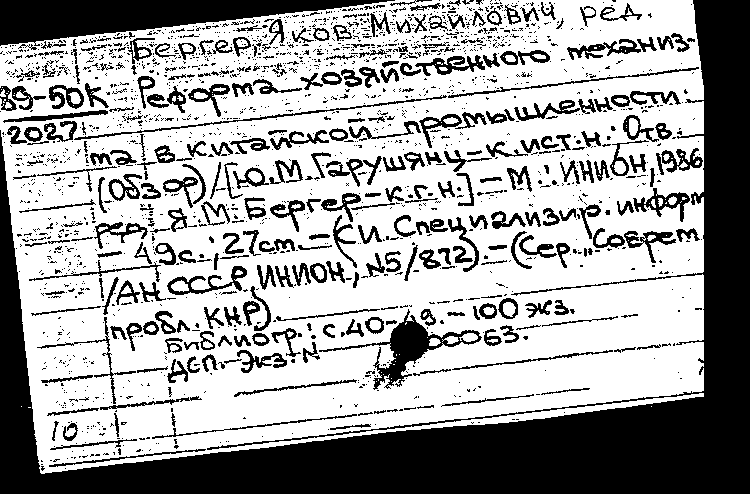 Бергер, Яков Михайлович, ред.
89-50К Реформа хозяйственного механиз-
2027 ма в китайской промышленности:
(Обзор)/[Ю.М.Гарушянц-к.ист.н.: Отв.
ред. Я.М.Бергер-к.г.н.].-М.: ИНИОН, 1986
- 49с.; 27см.-(Специализир. информ
/АН СССР, ИНИОН; N5/872).-(Сер. „Соврем.
пробл. КНР).
Библиогр.: с.40-49.-100 экз.
ДСП. Экз. N 00063.
10